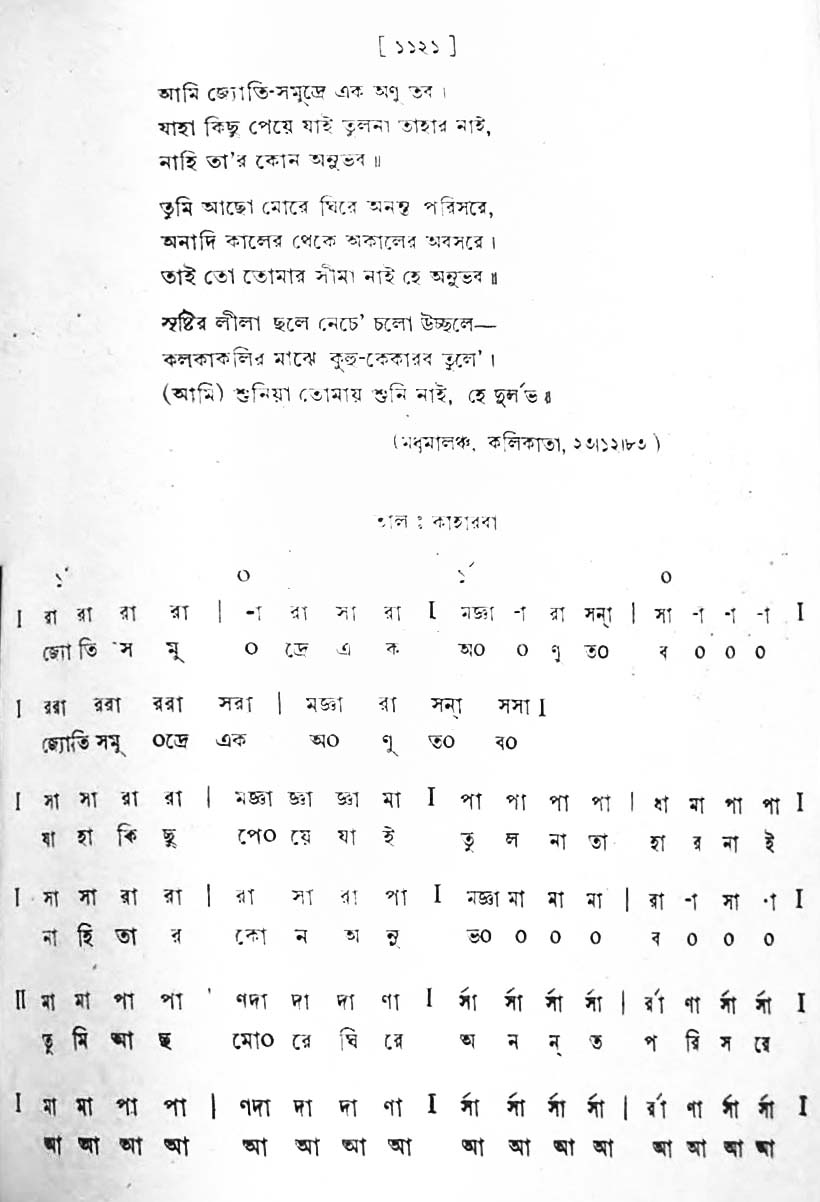 [ ১১২১ ]
আমি জ্যোতি-সমুদ্রে এক অণু তব ।
যাহা কিছু পেয়ে যাই তুলনা তাহার নাই,
নাহি তা'র কোন অনুভব ॥
তুমি আছো মোরে ঘিরে অনন্ত পরিসরে,
অনাদি কালের থেকে অকালের অবসরে ।
তাই তো তোমার সীমা নাই হে অনুভব ॥
সৃষ্টির লীলা ছলে নেচে' চলো উচ্ছলে—
কলকাকলির মাঝে কুহু-কেকারব তুলে' ।
(আমি) শুনিয়া তোমায় শুনি নাই, হে দুর্লভ ॥
(মধুমালঞ্চ, কলিকাতা, ২৩।১২।৮৩ )
তাল : কাহারবা
১´ ০ ১´ ০
I রা রা রা রা | -া রা সা রা I মজ্ঞা -া রা সন্‌া | সা -া -া -া I
জ্যো তি স মু ০ দ্রে এ ক অ০ ০ ণু ত০ ব ০ ০ ০
I ররা ররা ররা সরা | মজ্ঞা রা সন্‌া সসা I
জ্যোতি সমু ০দ্রে এক অ০ ণু ত০ ব০
I সা সা রা রা | মজ্ঞা জ্ঞা জ্ঞা মা I পা পা পা পা | ধা মা পা পা I
যা হা কি ছু পে০ য়ে যা ই তু ল না তা হা র না ই
I সা সা রা রা | রা সা রা পা I মজ্ঞা মা মা মা | রা -া সা -া I
না হি তা র কো ন অ নু ভ০ ০ ০ ০ ব ০ ০ ০
II মা মা পা পা ' ণদা দা দা ণা I র্সা র্সা র্সা র্সা | র্রা ণা র্সা র্সা I
তু মি আ ছ মো০ রে ঘি রে অ ন ন্ ত প রি স রে
I মা মা পা পা | ণদা দা দা ণা I র্সা র্সা র্সা র্সা | র্রা ণা র্সা র্সা I
আ আ আ আ আ আ আ আ আ আ আ আ আ আ আ আ